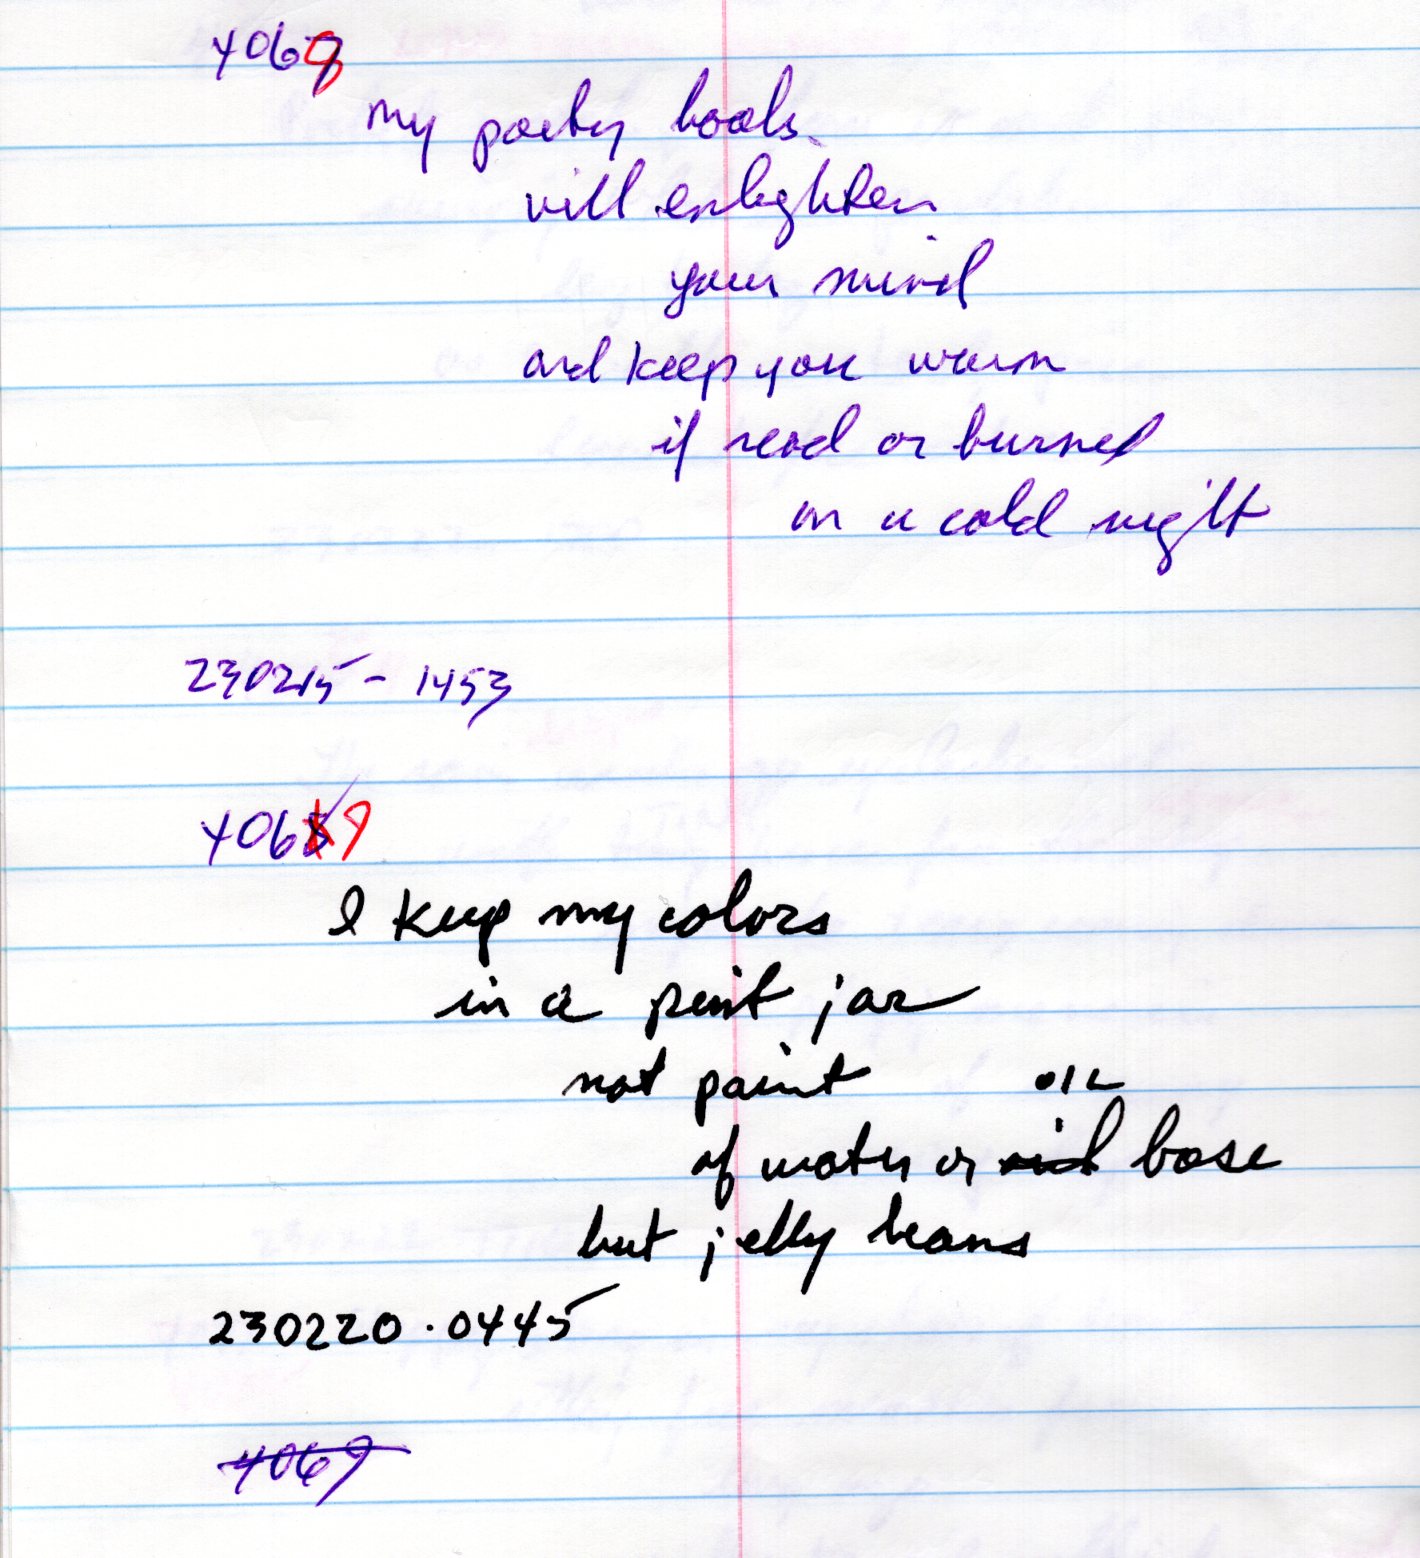 4068
my poetry books
will enlighten
your mind
and keep you warm
if read or burned
on a cold night
230215 - 1453
4069
I keep my colors
in a paint jar
not paint
of water or oil base
but jelly beans
230220 . 0445
4069